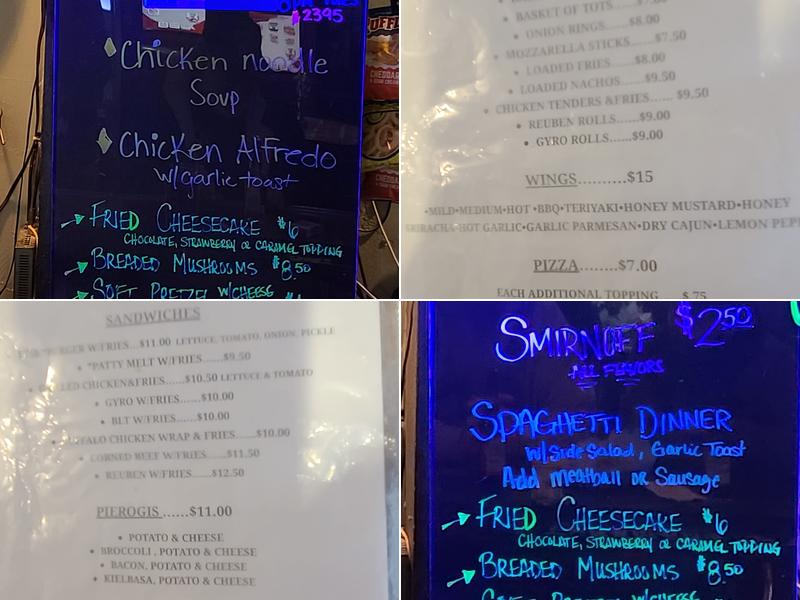 $2395
Chicken noodle
Soup
Chicken Alfredo
w/garlic toast
FRIED CHEESECAKE $6
CHOCOLATE, STRAWBERRY OR CARAMEL TOPPING
BREADED MUSHROOMS $8.50
SOFT PRETZEL W/CHEESE
CHEDDAR
BASKET OF TOTS
ONION RINGS......$8.00
MOZZARELLA STICKS......$7.50
LOADED FRIES......$8.00
LOADED NACHOS......$9.50
CHICKEN TENDERS &FRIES...... $9.50
REUBEN ROLLS......$9.00
GYRO ROLLS......$9.00
WINGS..........$15
•MILD•MEDIUM•HOT •BBQ•TERIYAKI•HONEY MUSTARD•HONEY
SRIRACHA•HOT GARLIC•GARLIC PARMESAN•DRY CAJUN•LEMON
PIZZA........$7.00
EACH ADDITIONAL TOPPING ....$.75
SANDWICHES
W/FRIES...$11.00 LETTUCE, TOMATO, ONION, PICKLE
*PATTY MELT W/FRIES......$9.50
CHICKEN&FRIES......$10.50 LETTUCE & TOMATO
GYRO W/FRIES......$10.00
BLT W/FRIES......$10.00
CHICKEN WRAP & FRIES......$10.00
CORNED BEEF W/FRIES......$11.50
REUBEN W/FRIES......$12.50
PIEROGIS ......$11.00
POTATO & CHEESE
BROCCOLI , POTATO & CHEESE
BACON, POTATO & CHEESE
KIELBASA, POTATO & CHEESE
SMIRNOFF $2.50
ALL FLAVORS
SPAGHETTI DINNER
w/Side Salad, Garlic Toast
Add meatball OR Sausage
FRIED CHEESECAKE $6
CHOCOLATE, STRAWBERRY OR CARAMEL TOPPING
BREADED MUSHROOMS $8.50
SOFT PRETZEL W/CHEESE